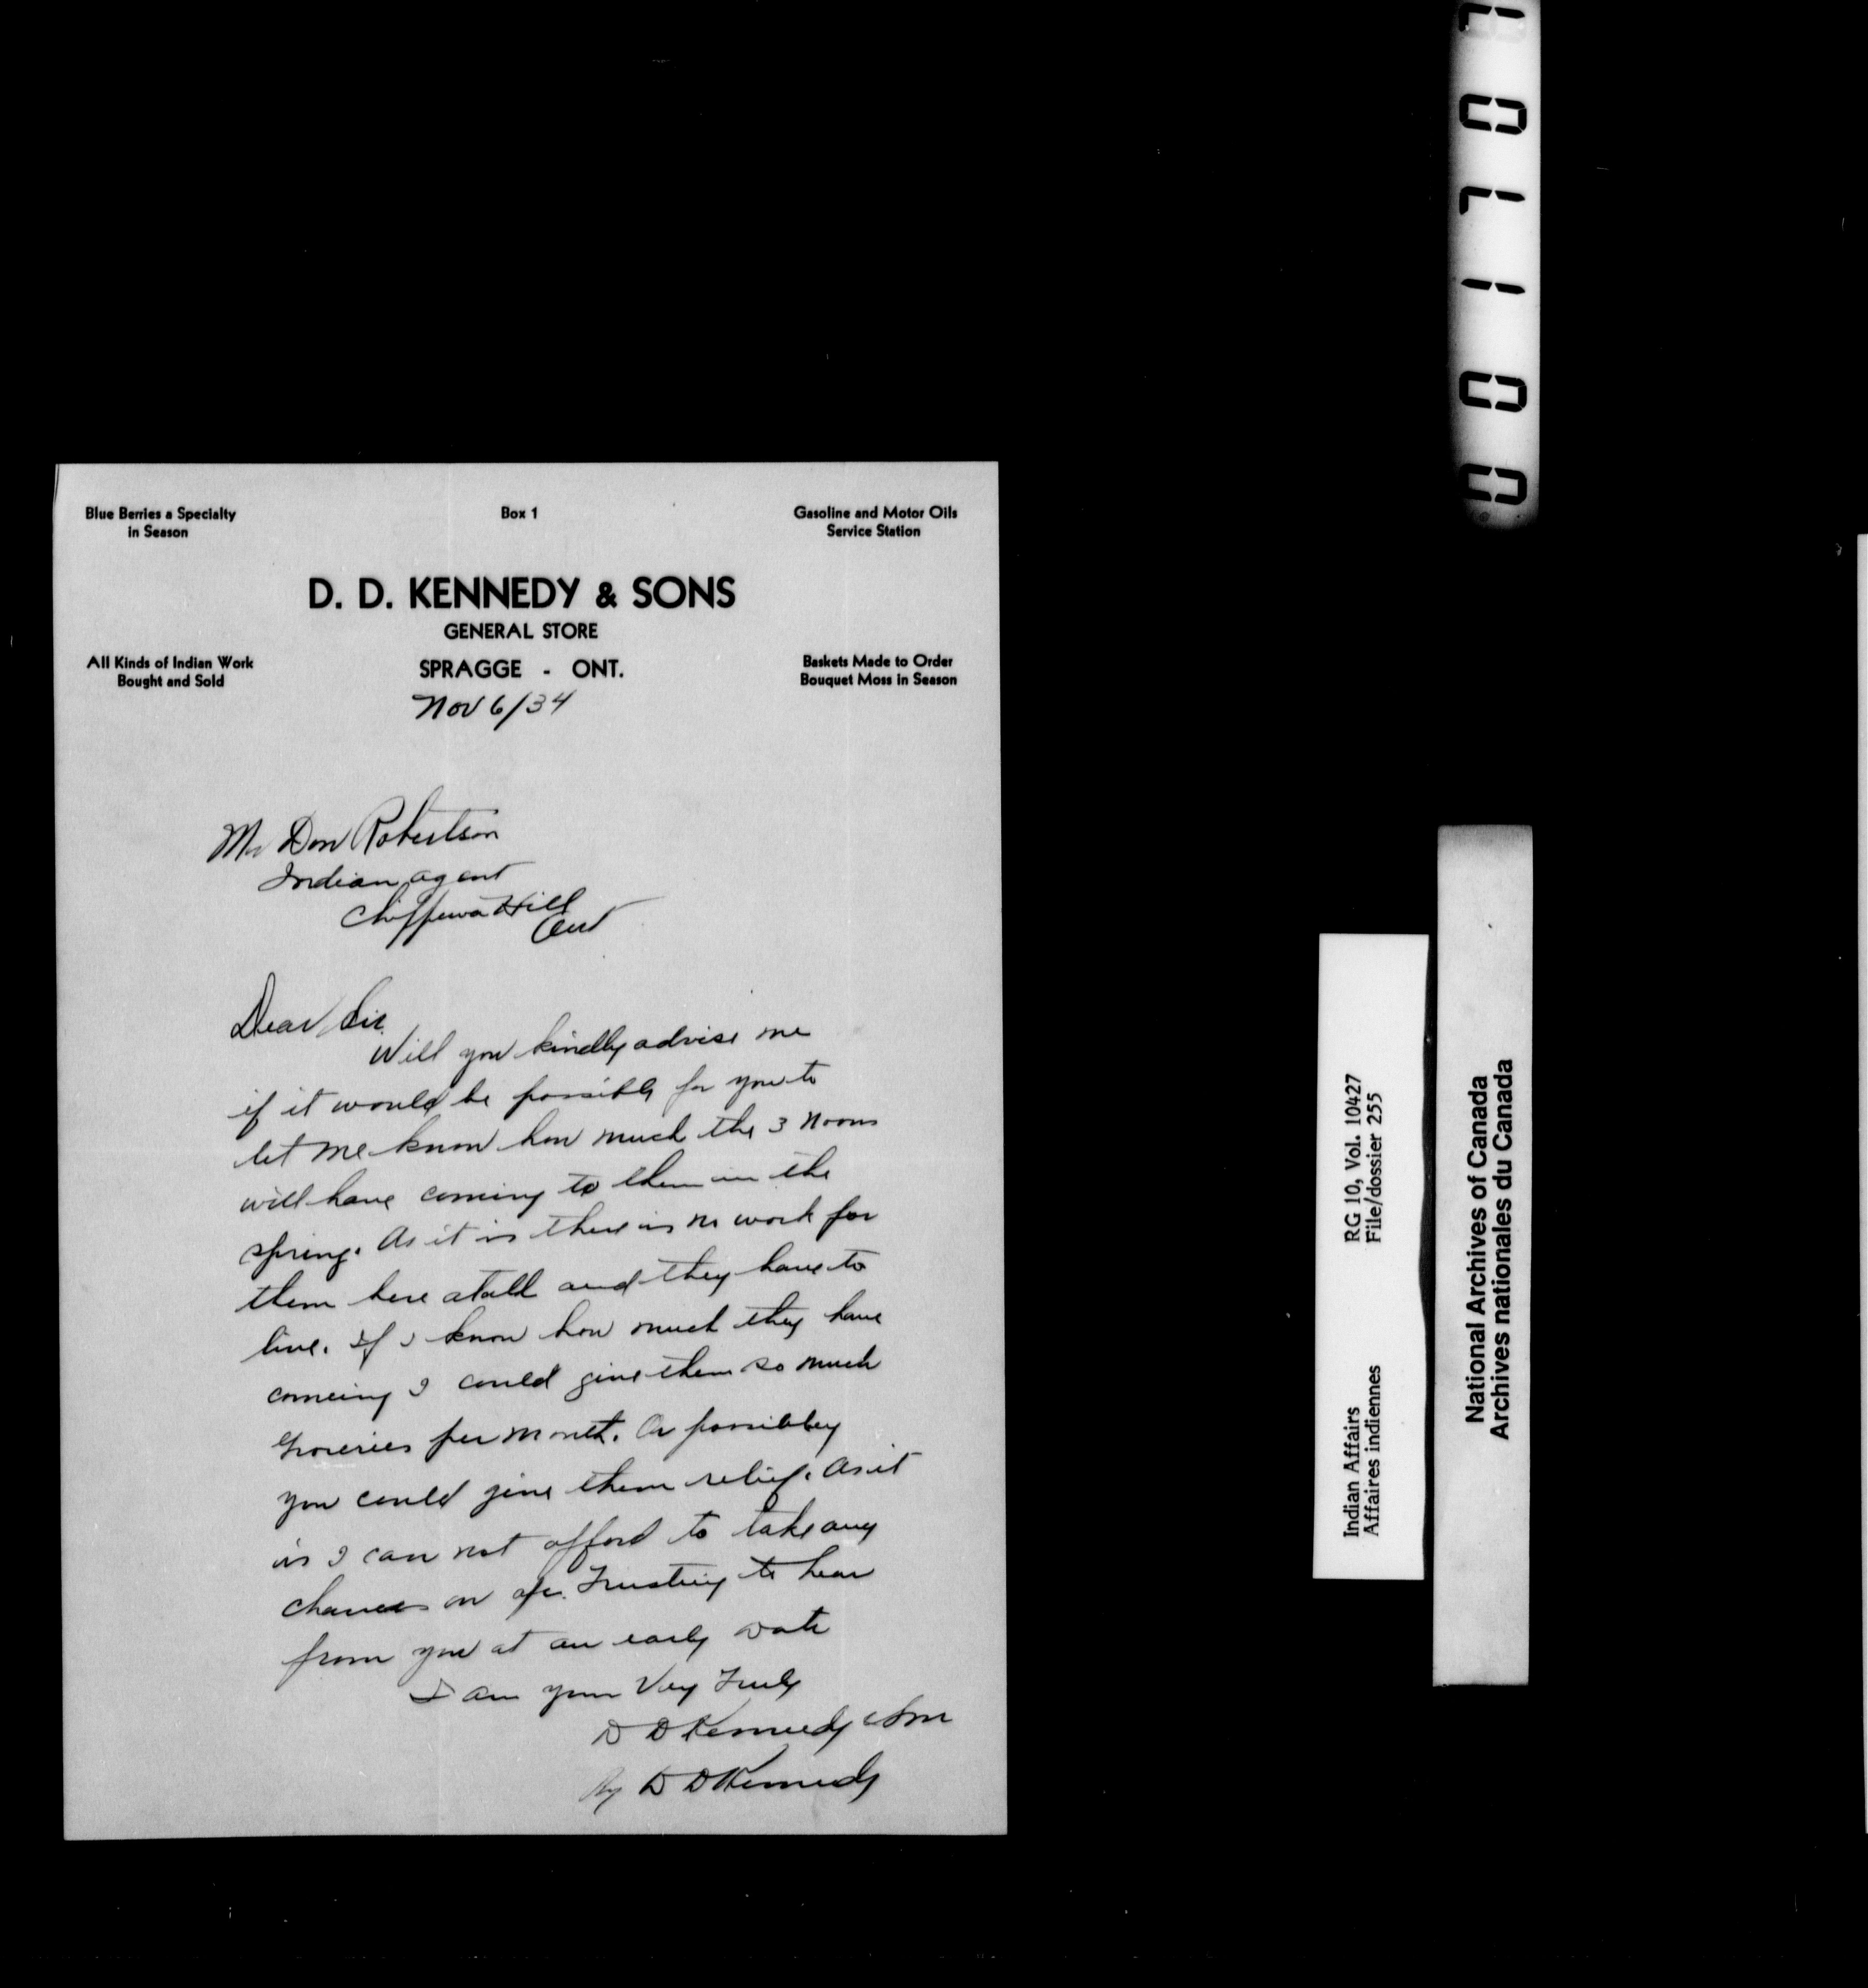 Blue Berries a Specialty
in Season
Box 1
Gasoline and Motor Oils
Service Station
D. D. KENNEDY & SONS
GENERAL STORE
All Kinds of Indian Work
Bought and Sold
SPRAGGE - ONT.
Baskets Made to Order
Bouquet Moss in Season
Nov 6/34
Mr Don Robertson
Indian agent
Chippewa Hill
Ont
Dear Sir
Will you kindly advise me
if it would be possible for you to
let me know how much the 3
will have coming to them in the
spring. As it is there is no work for
them here atall and they have to
live. If I know how much they have
comeing I could give them so much
groceries per month. Or possibley
you could give them relief. As it
is I can not afford to take any
chances on a/c. Trusting to hear
from you at an early date
I am your Very Truly
D D Kennedy & Son
By D D Kennedy
Indian Affairs RG 10, Vol. 10427
Affaires indiennes File/dossier 255
National Archives of Canada
Archives nationales du Canada